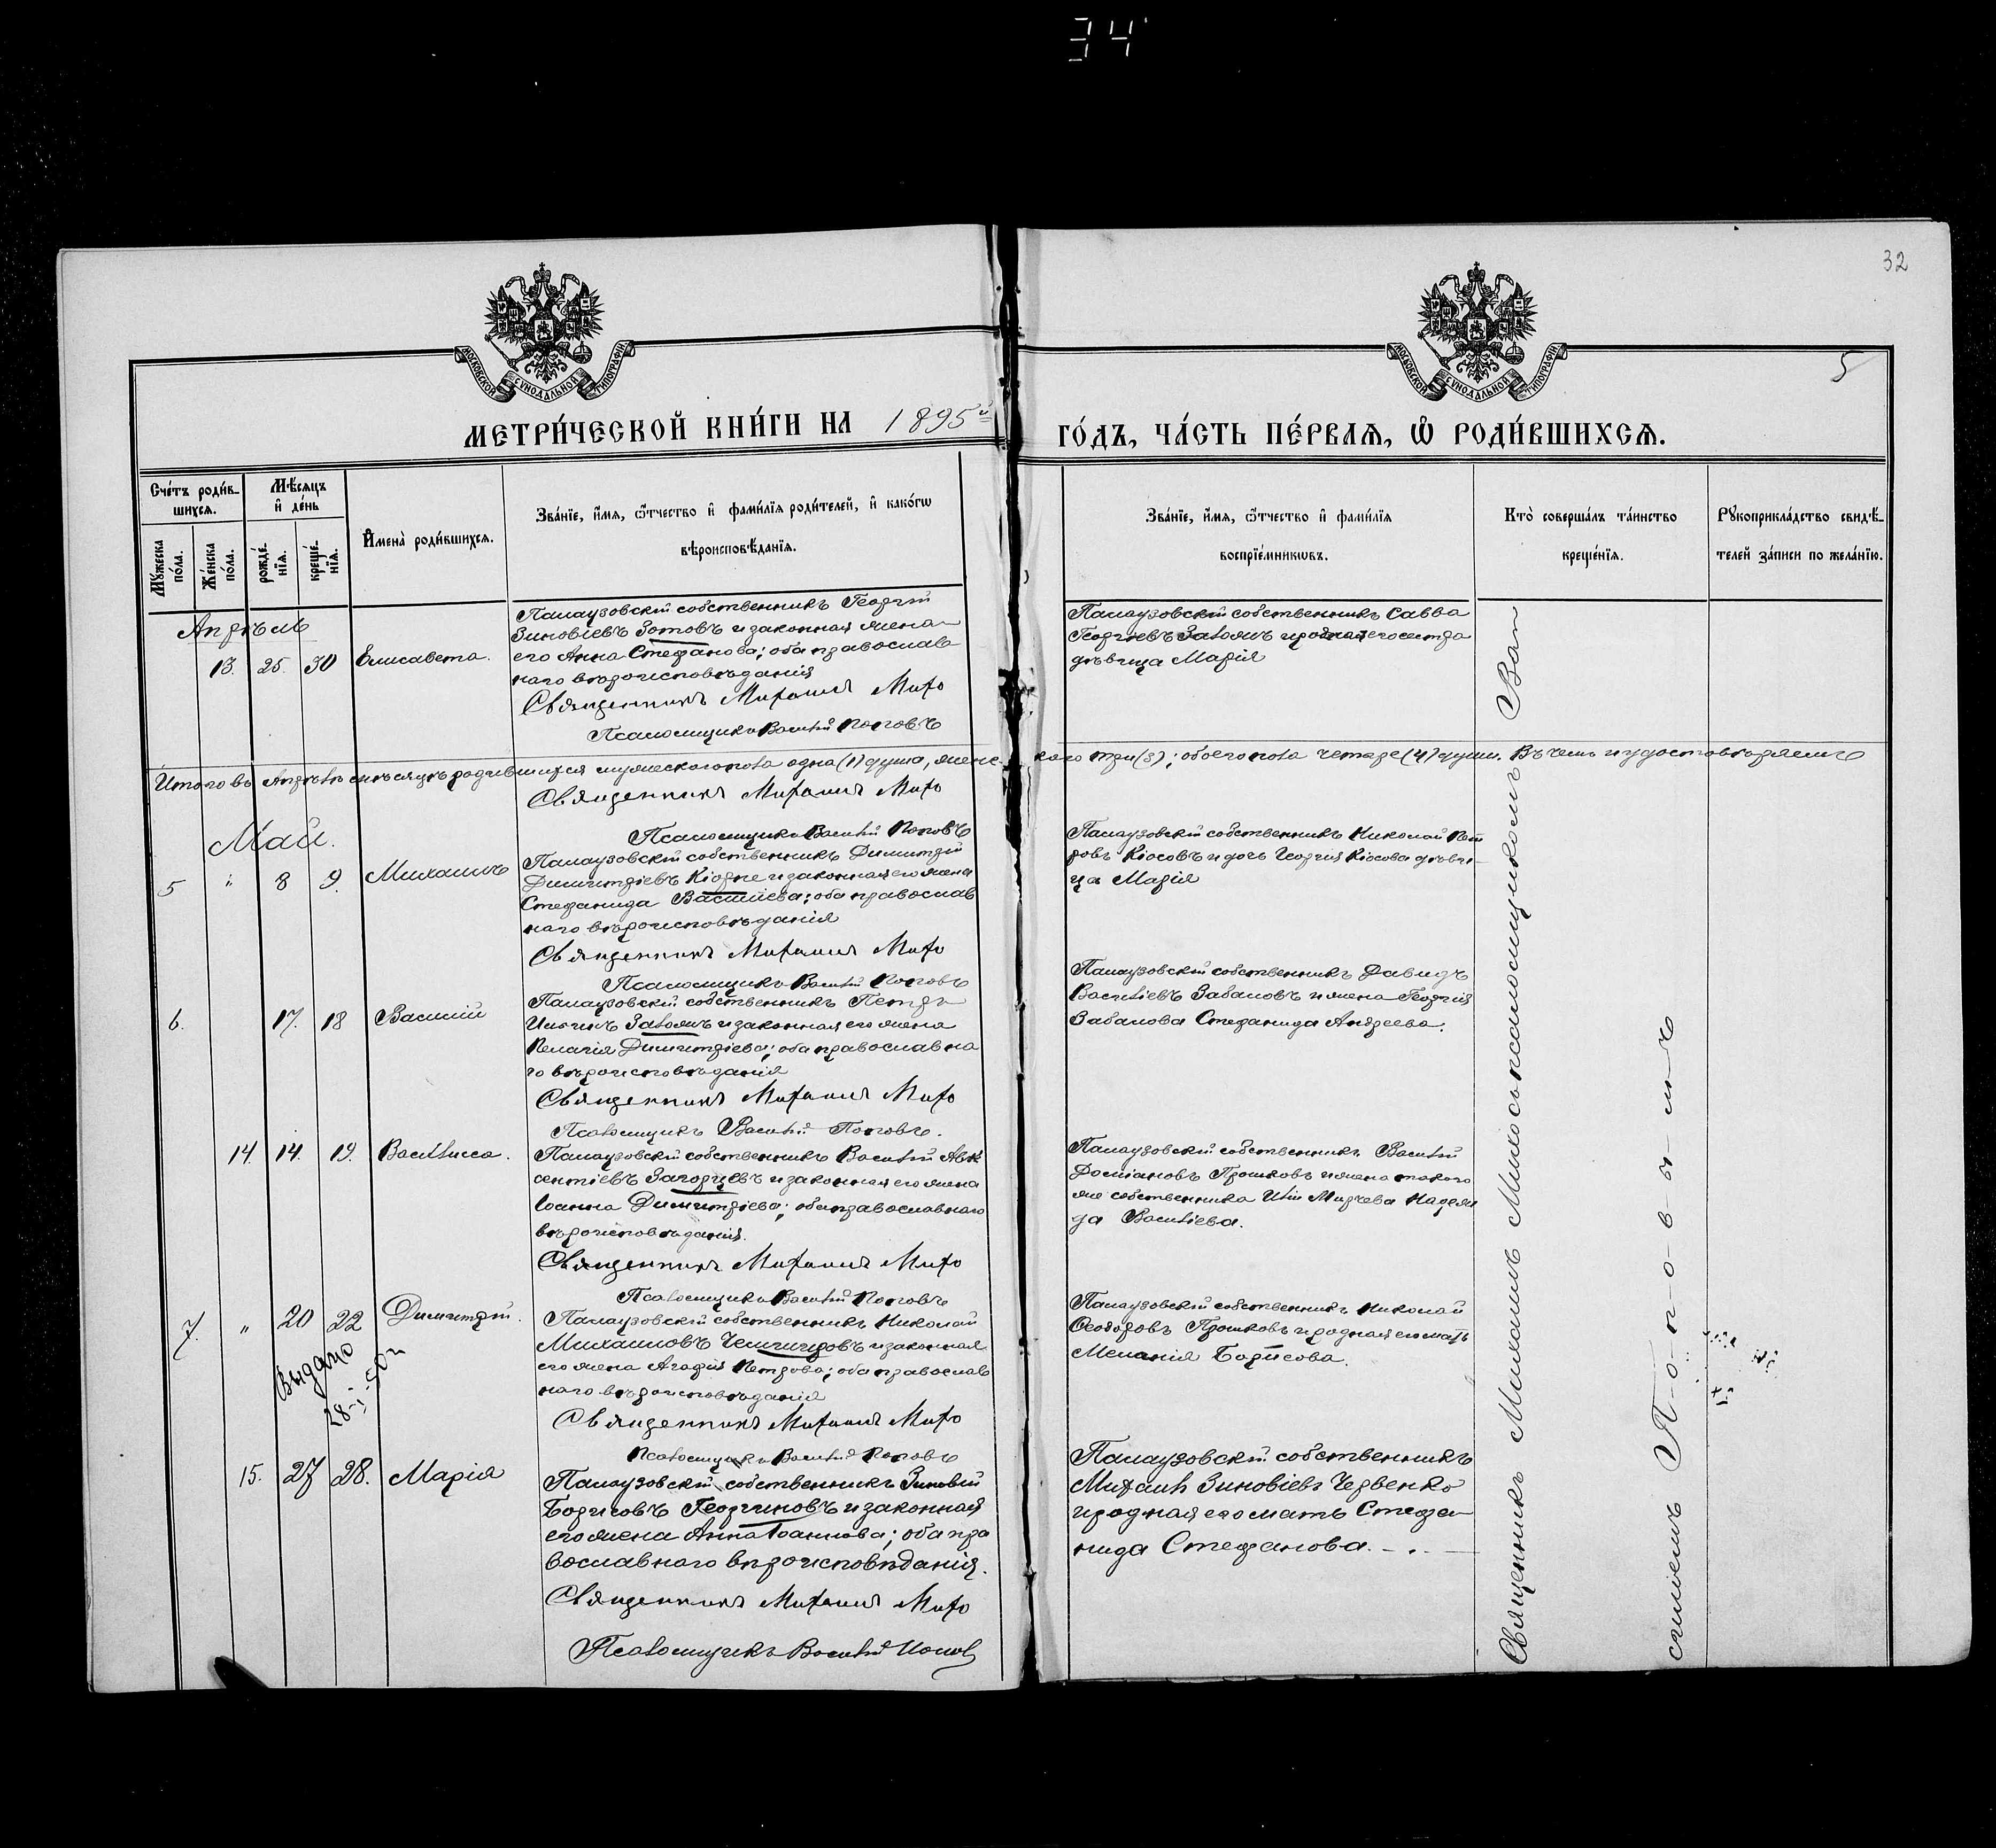 34
32
5
МОСКОВСКОЙ СУНОДАЛЬНОЙ ТИПОГРАФІИ
МОСКОВСКОЙ СУНОДАЛЬНОЙ ТИПОГРАФІИ
МЕТРИ́ЧЕСКОЙ КНИ́ГИ НА 1895й ГО́ДЪ, ЧА́СТЬ ПЕ́РВАЯ, Ѿ РОДИ́ВШИХСЯ.
Сче́тъ роди́в-
шихся.
Мѣ́сяцъ
и҆ де́нь
Мꙋ́жеска
по́ла.
Же́нска
по́ла.
рожде́-
нїя.
креще́-
нїя.
И҆мена̀ роди́вшихся.
Зва́нїе, и҆́мя, ѻ҆́тчество и҆ фами́лїя роди́телей, и҆ како́гѡ
вѣроисповѣ́данїя.
Зва́нїе, и҆́мя, ѻ҆́тчество и҆ фами́лїя
воспрїе́мникѡвъ.
Кто̀ соверша́лъ та́инство
креще́нїя.
Рꙋкоприкла́дство свидѣ́-
телей за́писи по жела́нїю.
Апрѣль
13. 25. 30 Елисавета.
Палаузовскій собственникъ Георгій
Зиновіевъ Зотовъ и законная жена
его Анна Стефанова; оба православ
наго вѣроисповѣданія
Священникъ Михаилъ Михо
Псаломщикъ Василій Поповъ
Палаузовскій собственникъ Савва
Георгіевъ и родная его сестра
дѣвица Марія
Итого въ Апрѣлѣ мѣсяцѣ родившихся мужескаго пола одна (1) душа, женс- каго три (3); обоего пола четыре (4) души. Въ чемъ и удостовѣряемъ
Священникъ Михаилъ Михо
Псаломщикъ Василій Поповъ
Май.
5 " 8 9. Михаилъ
Палаузовскій собственникъ Димитрій
Димитріевъ Кіорпе и законная его жена
Стефанида Василіева; оба православ
наго вѣроисповѣданія
Священникъ Михаилъ Михо
Псаломщикъ Василій Поповъ
Палаузовскій собственникъ Николай Пет
ровъ Кіосовъ и дочь Георгія Кіосова дѣви-
ца Марія
6. 17. 18 Василій
Палаузовскій собственникъ Петръ
Ильичъ и законная его жена
Пелагія Димитріева; оба православна
го вѣроисповѣданія
Священникъ Михаилъ Михо
Псаломщикъ Василій Поповъ.
Палаузовскій собственникъ Давидъ
Василіевъ Забановъ и жена Георгія
Забанова Стефанида Андреева.
14. 14. 19. Василисса.
Палаузовскій собственникъ Василій Авк
сентіевъ Загорцевъ и законная его жена
Іоанна Димитріева; оба православнаго
вѣроисповѣданія.
Священникъ Михаилъ Михо
Псаломщикъ Василій Поповъ
Палаузовскій собственникъ Василій
Доміановъ Прошковъ и жена такого
же собственника Иліи Мирчева Надеж
да Василіева.
7. " 20 22 Димитрій.
Выдано
28-
Палаузовскій собственникъ Николай
Михаиловъ и законная
его жена Агафія Петрова; оба православ
наго вѣроисповѣданія
Священникъ Михаилъ Михо
Псаломщикъ Василій Поповъ
Палаузовскій собственникъ Николай
Ѳеодоровъ Прошковъ и родная его мать
Меланія Борисова.
15. 27 28. Марія
Палаузовскій собственникъ Зиновій
Борисовъ Георгиновъ и законная
его жена Анна Іоаннова; оба пра
вославнаго вѣроисповѣданія.
Священникъ Михаилъ Михо
Псаломщикъ Василій Попов
Палаузовскій собственникъ
Михаилъ Зиновіевъ Червенко
и родная его мать Стефа-
нида Стефанова.
Священникъ Михаилъ Михо съ псаломщикомъ Ва
силіемъ П-о-п-о-в-ы-м-ъ